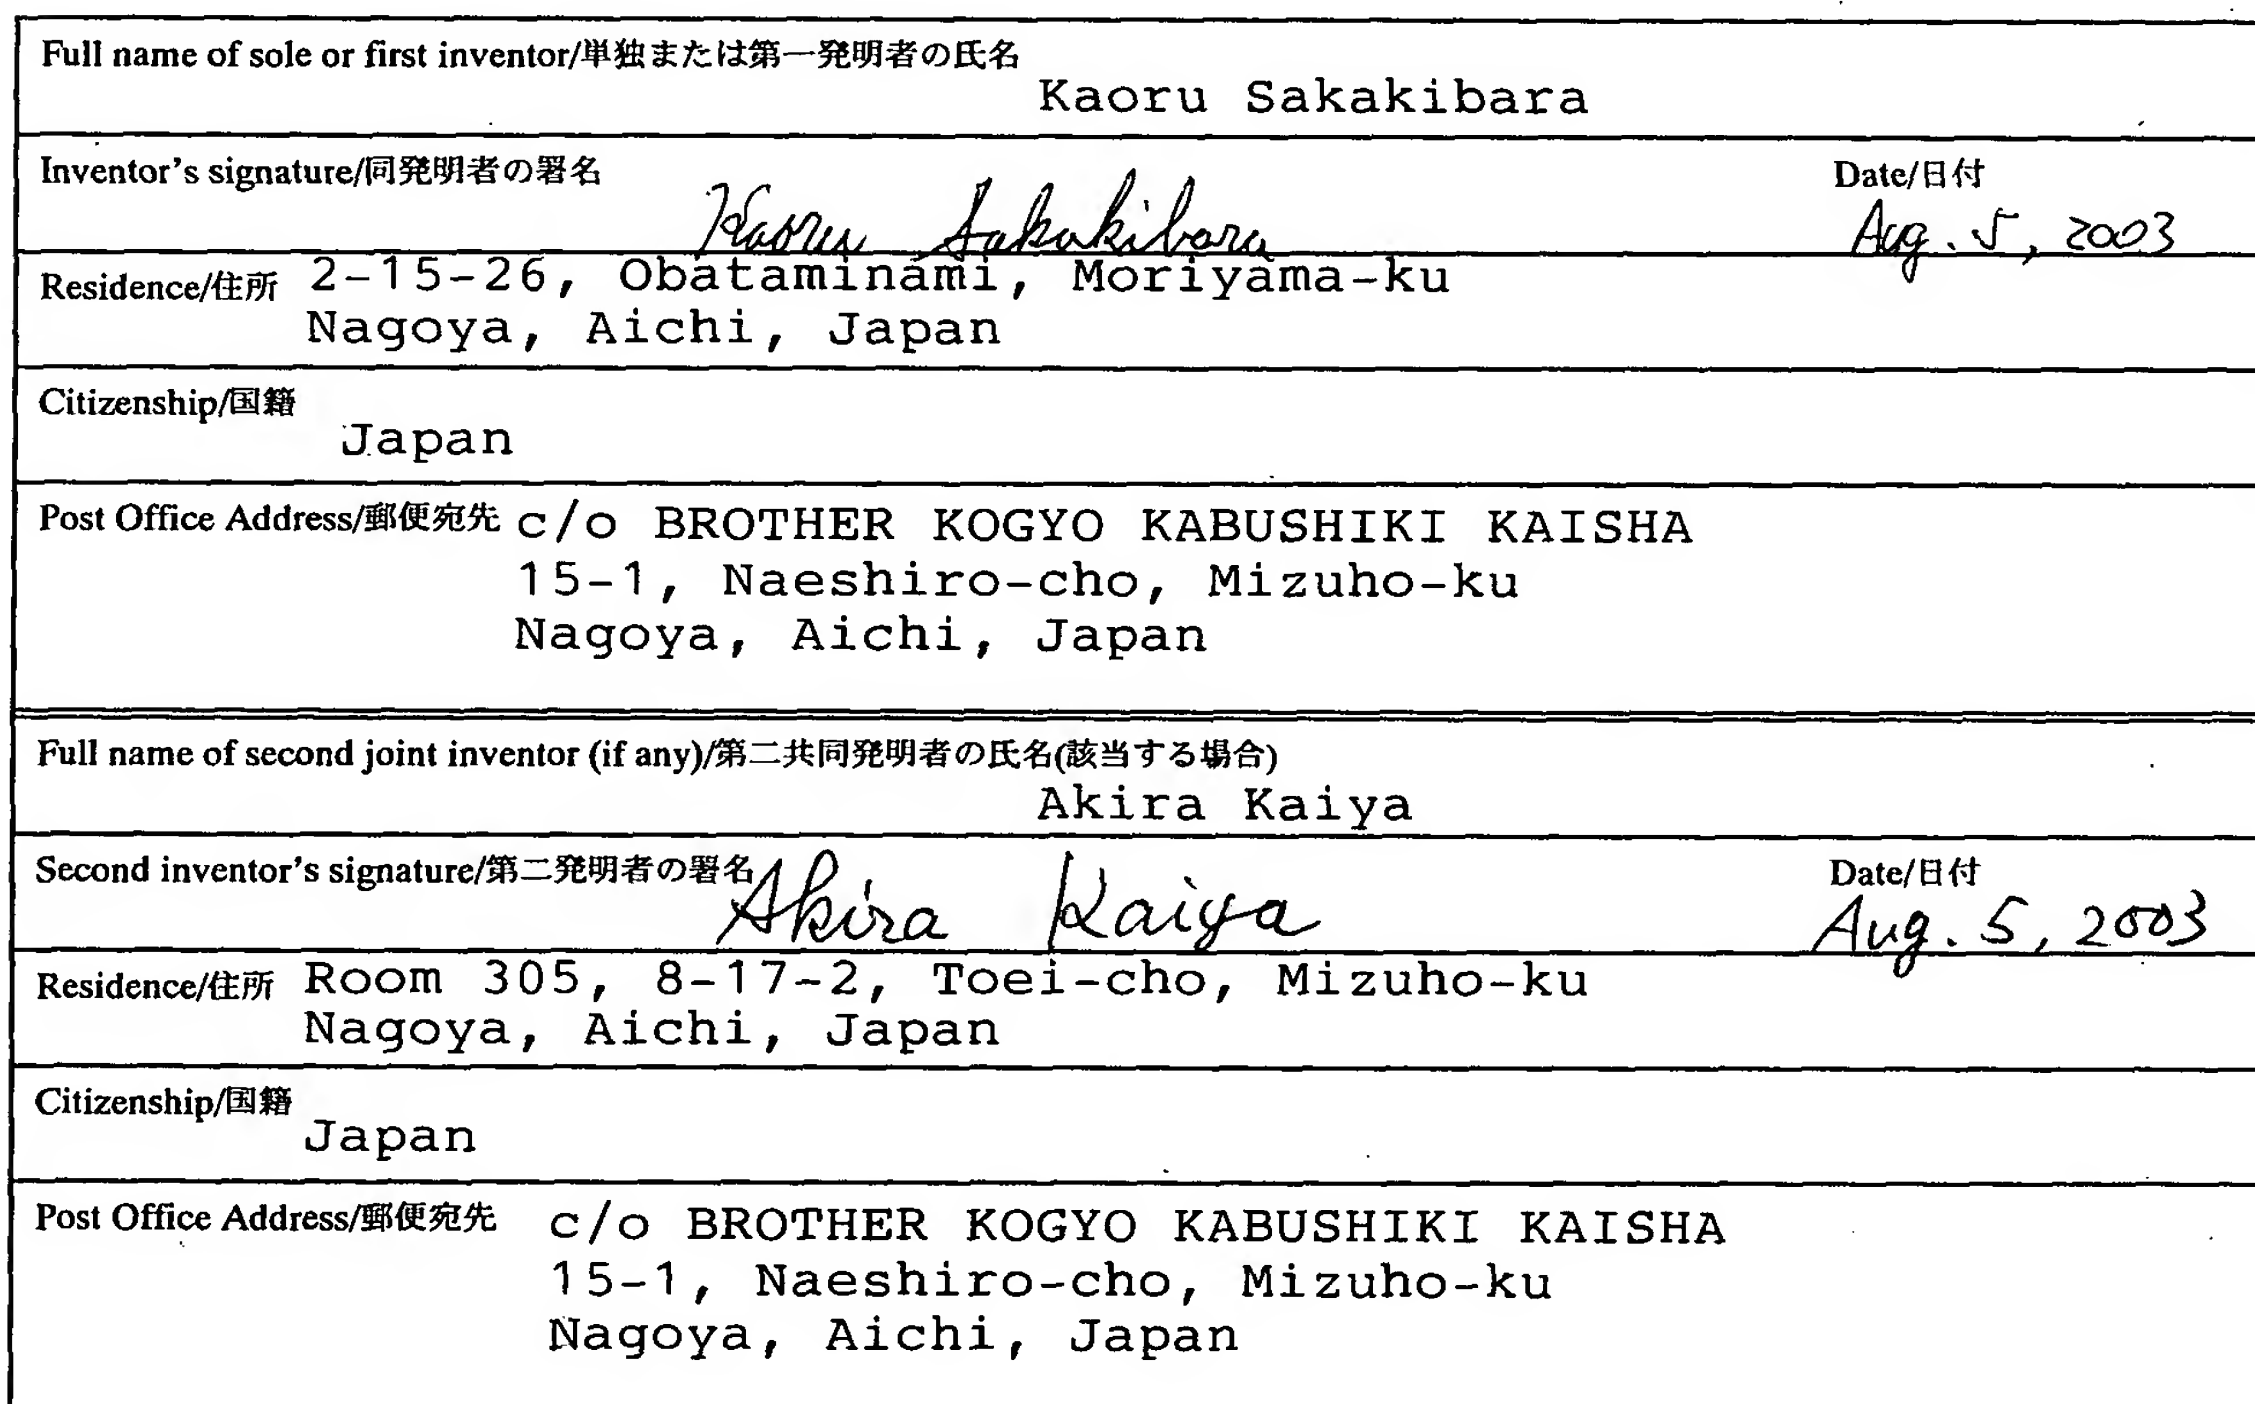 Full name of sole or first inventor/単独または第一発明者の氏名
Kaoru Sakakibara
Inventor's signature/同発明者の署名
Date/日付
Kaoru Sakakibara
Aug. 5, 2003
Residence/住所 2-15-26, Obataminami, Moriyama-ku
Nagoya, Aichi, Japan
Citizenship/国籍
Japan
Post Office Address/郵便宛先 c/o BROTHER KOGYO KABUSHIKI KAISHA
15-1, Naeshiro-cho, Mizuho-ku
Nagoya, Aichi, Japan
Full name of second joint inventor (if any)/第二共同発明者の氏名(該当する場合)
Akira Kaiya
Second inventor's signature/第二発明者の署名
Date/日付
Akira Kaiya
Aug. 5, 2003
Residence/住所 Room 305, 8-17-2, Toei-cho, Mizuho-ku
Nagoya, Aichi, Japan
Citizenship/国籍
Japan
Post Office Address/郵便宛先 c/o BROTHER KOGYO KABUSHIKI KAISHA
15-1, Naeshiro-cho, Mizuho-ku
Nagoya, Aichi, Japan